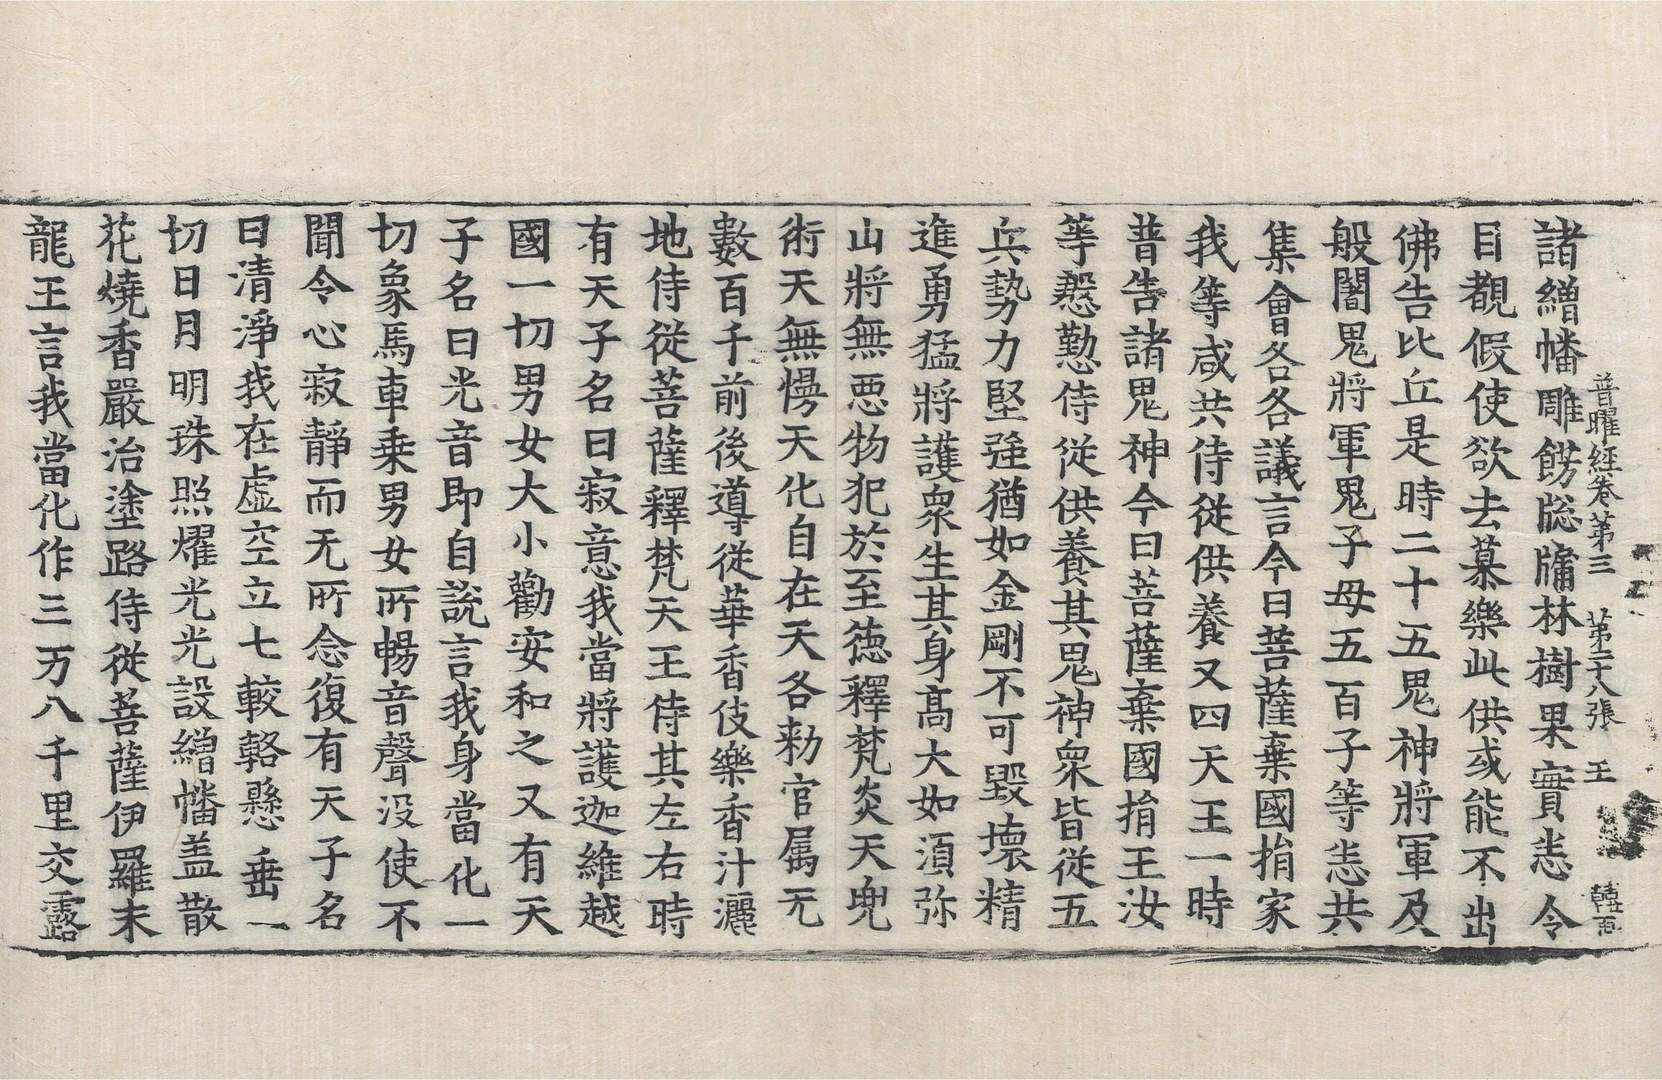 普曜經卷第三　第二十八張　王　韓百
諸繒幡雕餝牕牖林樹果實恙令
目覩假使欲去慕樂此供或能不出
佛告比丘是時二十五鬼神將軍及
般闍鬼將軍鬼子母五百子等恙共
集會各各議言今日菩薩棄國捐家
我等咸共侍從供養又四天王一時
普告諸鬼神今日菩薩棄國捐王汝
等慇懃侍從供養其鬼神衆皆從五
兵勢力堅强猶如金剛不可毀壞精
進勇猛將護衆生其身高大如須弥
山將無惡物犯於至德釋梵炎天兜
術天無憍天化自在天各勑官属无
數百千前後導從華香伎樂香汁灑
地侍從菩薩釋梵天王侍其左右時
有天子名曰寂意我當將護迦維越
國一切男女大小勸安和之又有天
子名曰光音即自說言我身當化一
切象馬車乗男女所暢音聲没使不
聞令心寂靜而无所念復有天子名
曰清淨我在虛空立七較輅懸垂一
切日月明珠照燿光光設繒幡盖散
花燒香嚴治塗路侍從菩薩伊羅末
龍王言我當化作三万八千里交露